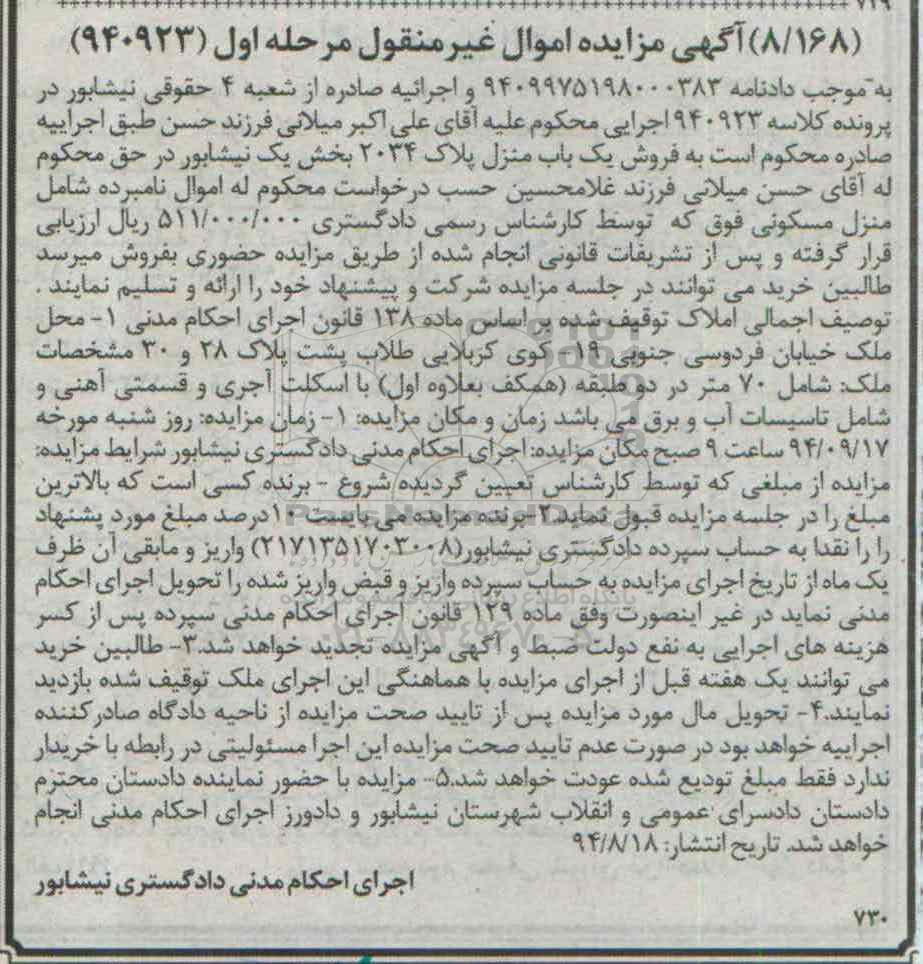 ۷۲۹
(۸/۱۶۸) آگهی مزایده اموال غیرمنقول مرحله اول (۹۴۰۹۲۳)
به موجب دادنامه ۹۴۰۹۹۷۵۱۹۸۰۰۰۳۸۳ و اجرائیه صادره از شعبه ۴ حقوقی نیشابور در
پرونده کلاسه ۹۴۰۹۲۳ اجرایی محکوم علیه آقای علی اکبر میلانی فرزند حسن طبق اجراییه
صادره محکوم است به فروش یک باب منزل پلاک ۲۰۳۴ بخش یک نیشابور در حق محکوم
له آقای حسن میلانی فرزند غلامحسین حسب درخواست محکوم له اموال نامبرده شامل
منزل مسکونی فوق که توسط کارشناس رسمی دادگستری ۵۱۱/۰۰۰/۰۰۰ ریال ارزیابی
قرار گرفته و پس از تشریفات قانونی انجام شده از طریق مزایده حضوری بفروش میرسد
طالبین خرید می توانند در جلسه مزایده شرکت و پیشنهاد خود را ارائه و تسلیم نمایند .
توصیف اجمالی املاک توقیف شده بر اساس ماده ۱۳۸ قانون اجرای احکام مدنی ۱- محل
ملک خیابان فردوسی جنوبی ۱۹- کوی کربلایی طلاب پشت پلاک ۲۸ و ۳۰ مشخصات
ملک: شامل ۷۰ متر در دو طبقه (همکف بعلاوه اول) با اسکلت آجری و قسمتی آهنی و
شامل تاسیسات آب و برق می باشد زمان و مکان مزایده: ۱- زمان مزایده: روز شنبه مورخه
۹۴/۰۹/۱۷ ساعت ۹ صبح مکان مزایده: اجرای احکام مدنی دادگستری نیشابور شرایط مزایده:
مزایده از مبلغی که توسط کارشناس تعیین گردیده شروع - برنده کسی است که بالاترین
مبلغ را در جلسه مزایده قبول نماید.۲- برنده مزایده می بایست ۱۰درصد مبلغ مورد پشنهاد
را را نقدا به حساب سپرده دادگستری نیشابور(۲۱۷۱۳۵۱۷۰۳۰۰۸) واریز و مابقی آن ظرف
یک ماه از تاریخ اجرای مزایده به حساب سپرده واریز و قبض واریز شده را تحویل اجرای احکام
مدنی نماید در غیر اینصورت وفق ماده ۱۲۹ قانون اجرای احکام مدنی سپرده پس از کسر
هزینه های اجرایی به نفع دولت ضبط و آگهی مزایده تجدید خواهد شد.۳- طالبین خرید
می توانند یک هفته قبل از اجرای مزایده با هماهنگی این اجرای ملک توقیف شده بازدید
نمایند.۴- تحویل مال مورد مزایده پس از تایید صحت مزایده از ناحیه دادگاه صادرکننده
اجراییه خواهد بود در صورت عدم تایید صحت مزایده این اجرا مسئولیتی در رابطه با خریدار
ندارد فقط مبلغ تودیع شده عودت خواهد شد.۵- مزایده با حضور نماینده دادستان محترم
دادستان دادسرای عمومی و انقلاب شهرستان نیشابور و دادورز اجرای احکام مدنی انجام
خواهد شد. تاریخ انتشار: ۹۴/۸/۱۸
اجرای احکام مدنی دادگستری نیشابور
۷۳۰
ParsNamadData